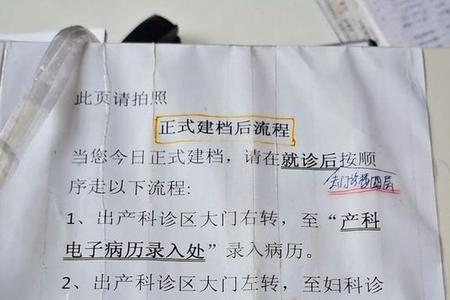 此页请拍照
正式建档后流程
当您今日正式建档，请在就诊后按顺
序走以下流程：
去门诊楼四层
1、出产科诊区大门右转，至“产科
电子病历录入处”录入病历。
2、出产科诊区大门左转，至妇科诊